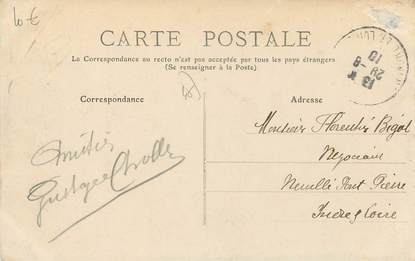 10 €
CARTE POSTALE
La Correspondance au recto n'est pas acceptée par tous les pays étrangers
(Se renseigner à la Poste)
Correspondance
Adresse
13
29 - 8
10
Monsieur Florentin Bigot
Négociant
Neuillé Pont Pierre
Indre & Loire
Amitiés
Gustave